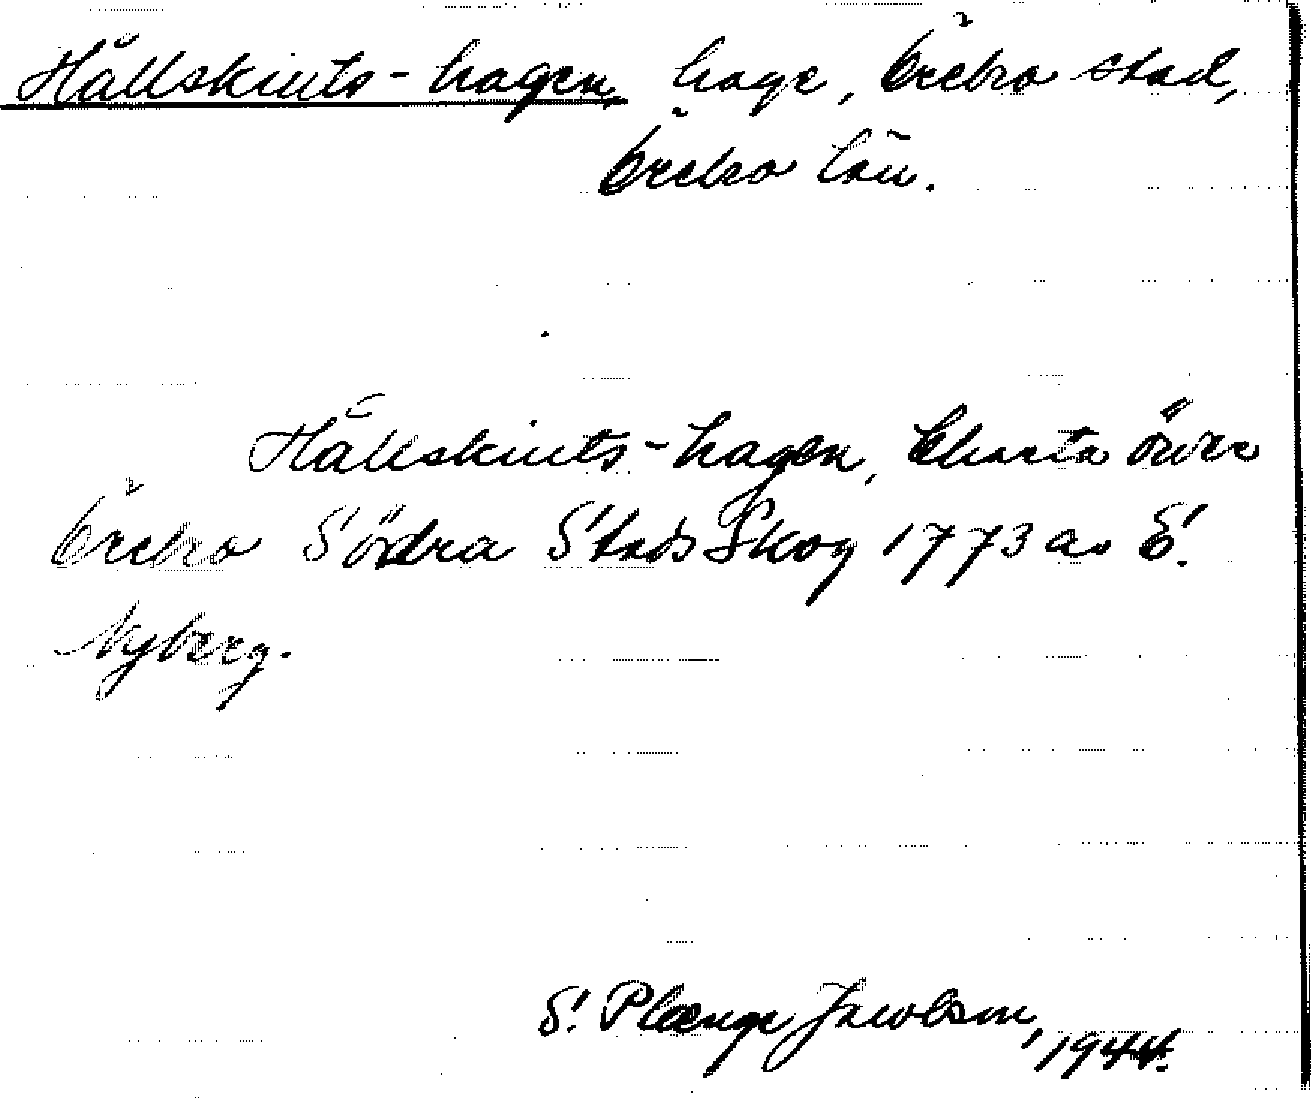 Hållskints-hagen, hage, Örebro stad,
Örebro län.
Hållskints-hagen, Charta över
Örebro Södra Stads Skog 1773 av E.
Nyberg.
S. Plænge Jacobson, 1944.